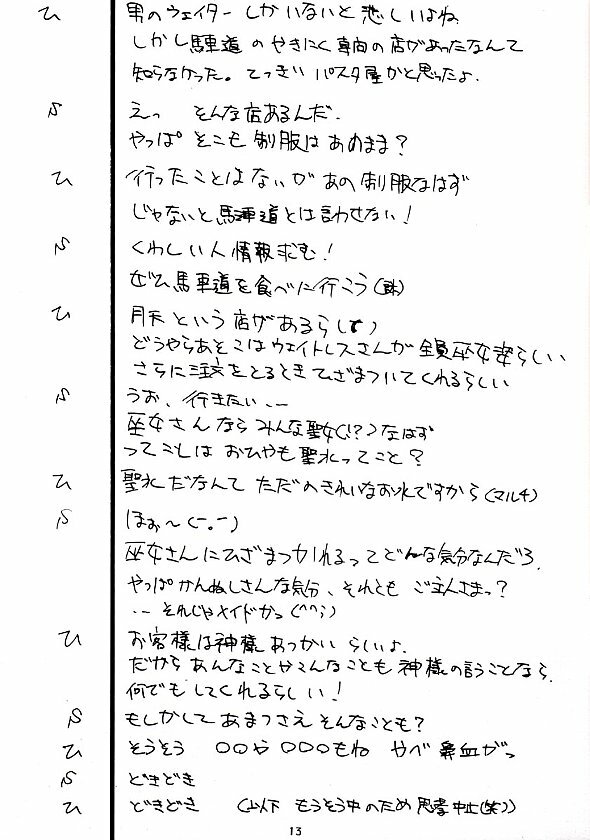 ひ 男のウェイターしかいないと悲しいよね
しかし馬車道のやきにく専向の店があったなんて
知らなかった。てっきり パスタ屋かと思ったよ.
S えっ そんな店あるんだ.
やっぱ そこも制服はあのまま？
ひ 行ったことはないがあの制服なはず
じゃないと馬車道とは言わせない！
S くわしい人情報求む！
ぜひ馬車道を食べに行こう
ひ 月天という店があるらしい
どうやらあそこはウェイトレスさんが全員巫女姿らしい
さらに注文をとるときひざまついてくれるらしい
S うお、行きたい、--
巫女さんならみんな聖女(!?)なはず
ってことは おひやも聖水ってこと？
ひ 聖水だなんて ただのきれいなお水ですから(マルチ)
S ほぉ～(-。-)
巫女さんにひざまつかれるってどんな気分なんだろ.
やっぱかんぬしさんな気分、それとも ご主人さまっ？
-- それじゃメイドかっ(^^;)
ひ お客様は神様あつかいらしいよ.
だから あんなことやこんなことも 神様の言うことなら.
何でもしてくれるらしい！
S もしかしてあまつさえそんなことも？
ひ そうそう 〇〇や〇〇〇もね やべ鼻血がっ
S どきどき
ひ どきどき (以下 もうそう中のため思考中止(笑))
13